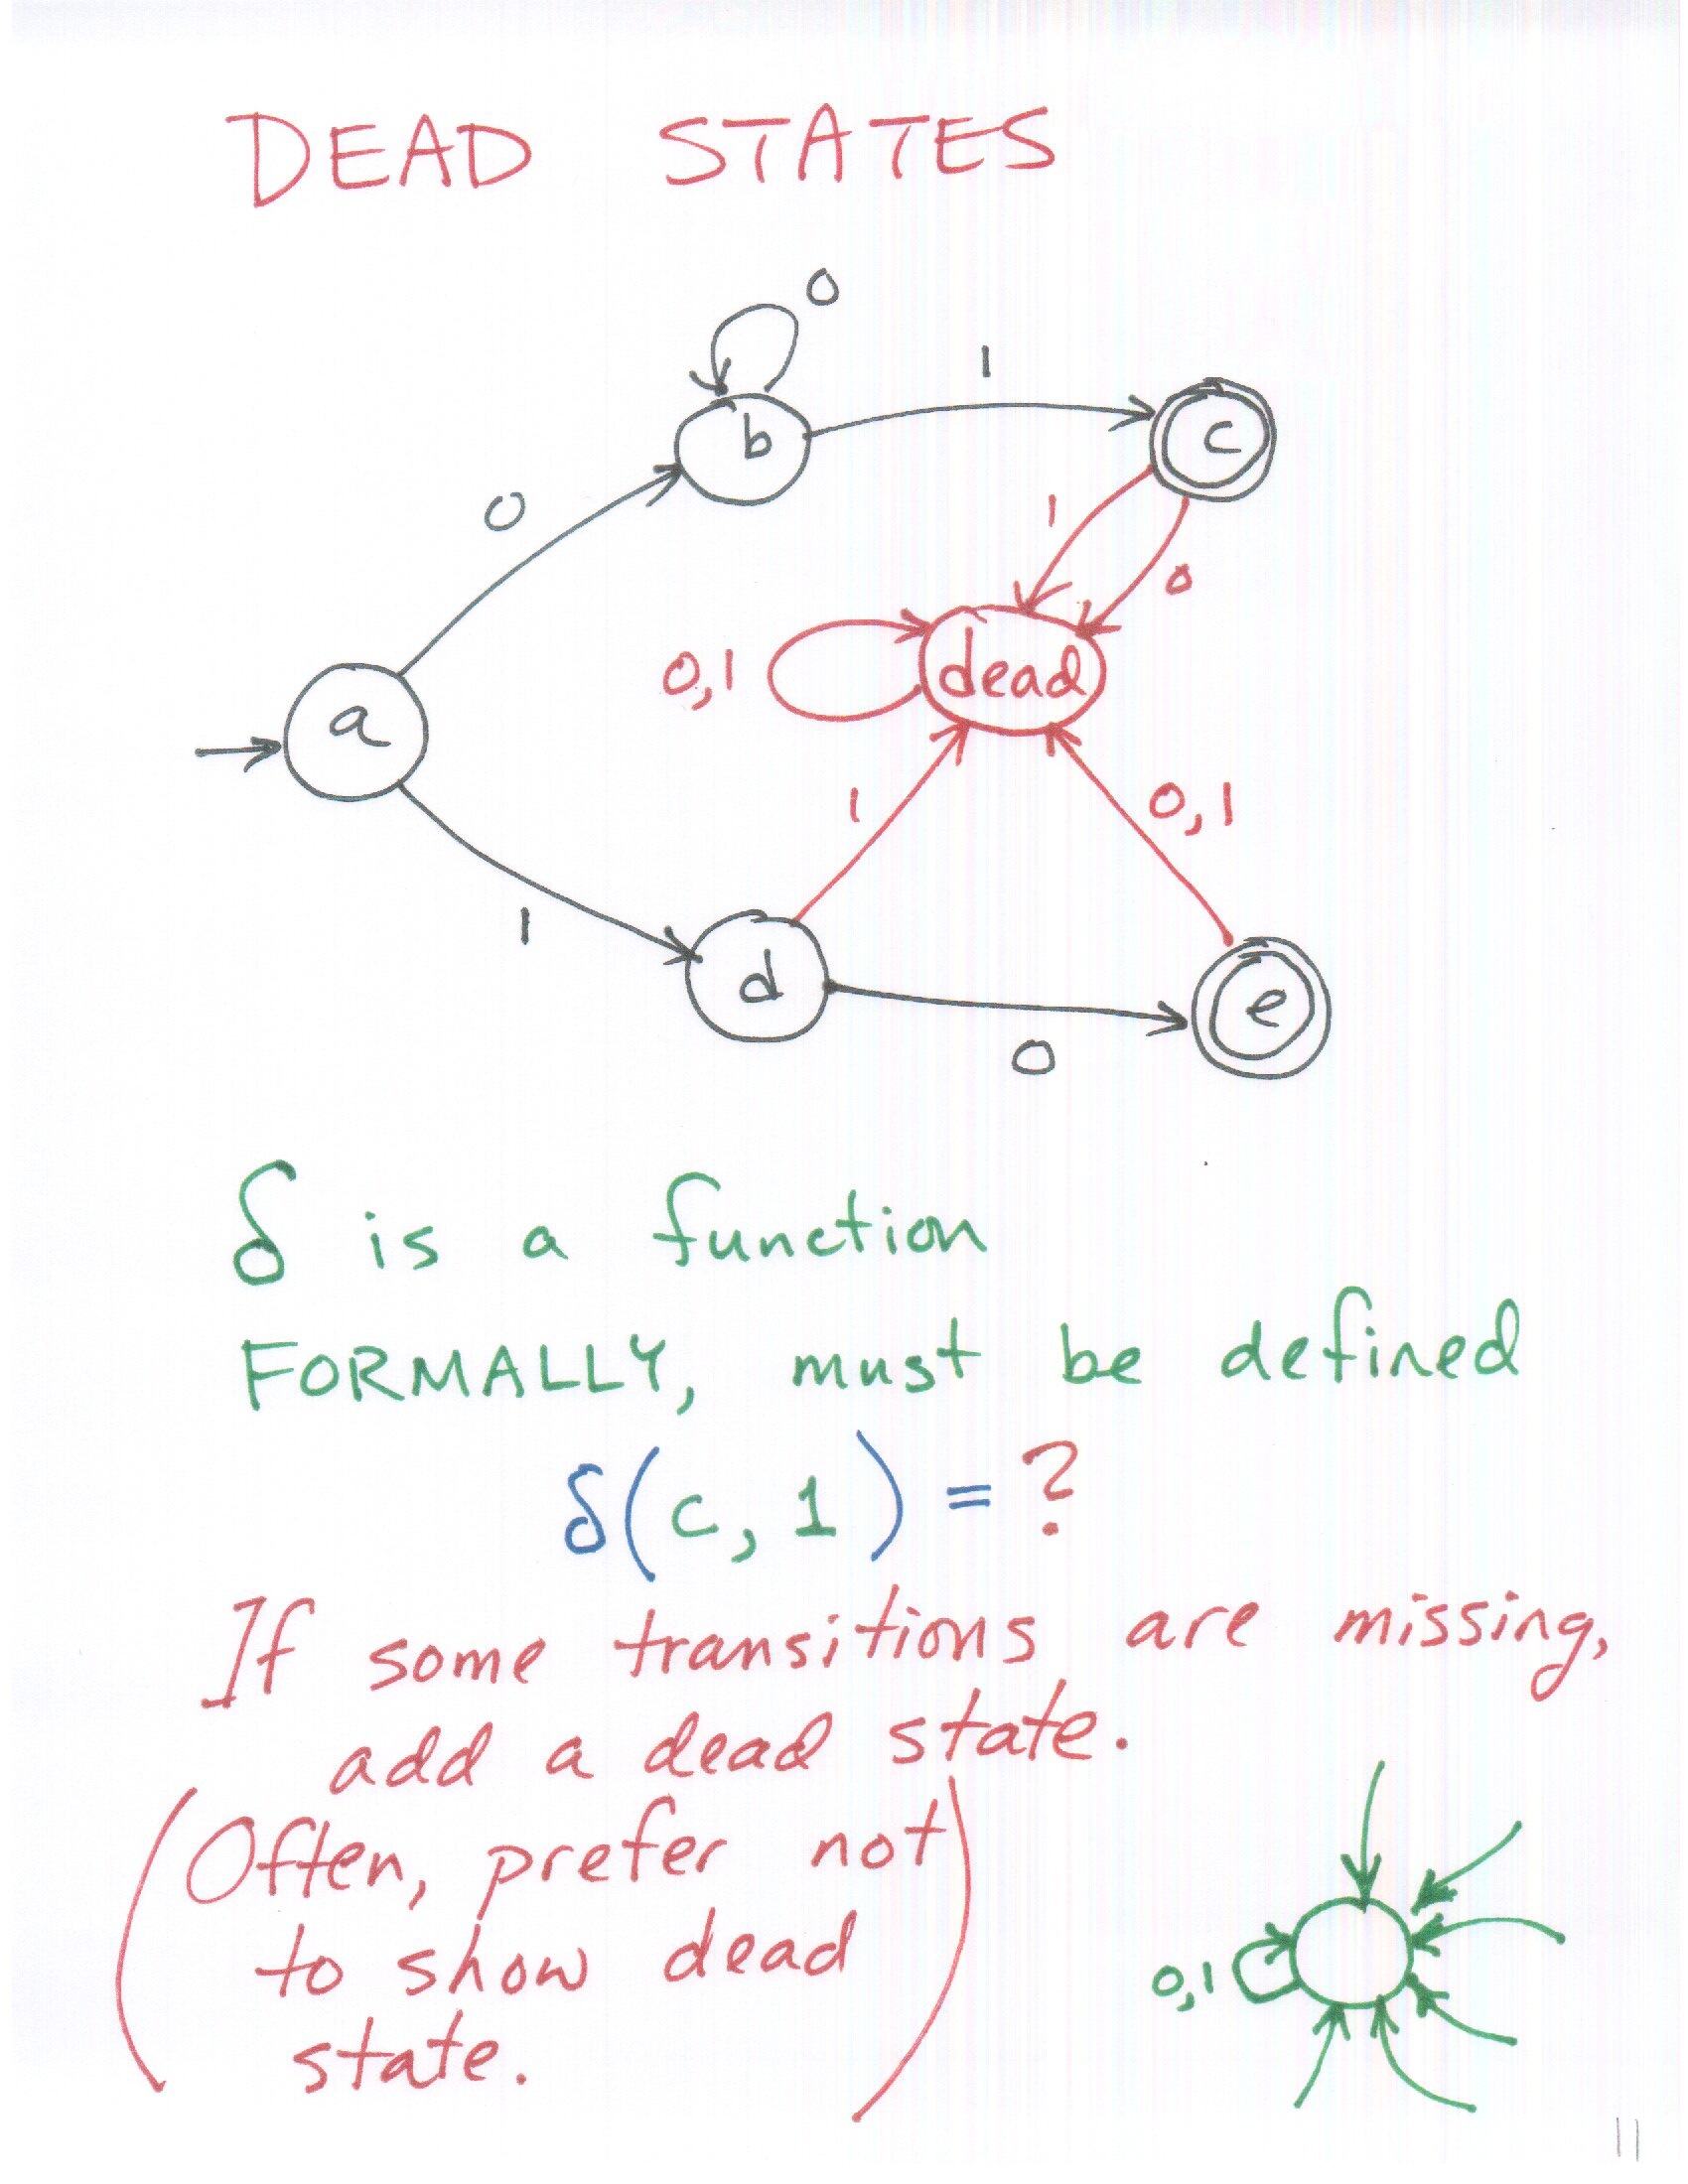 DEAD STATES
0
b
1
c
0
1
0
0,1
dead
a
1
0,1
1
d
e
0
δ is a function
FORMALLY, must be defined
δ(c, 1) = ?
If some transitions are missing,
add a dead state.
(Often, prefer not
to show dead
state.)
0,1
11